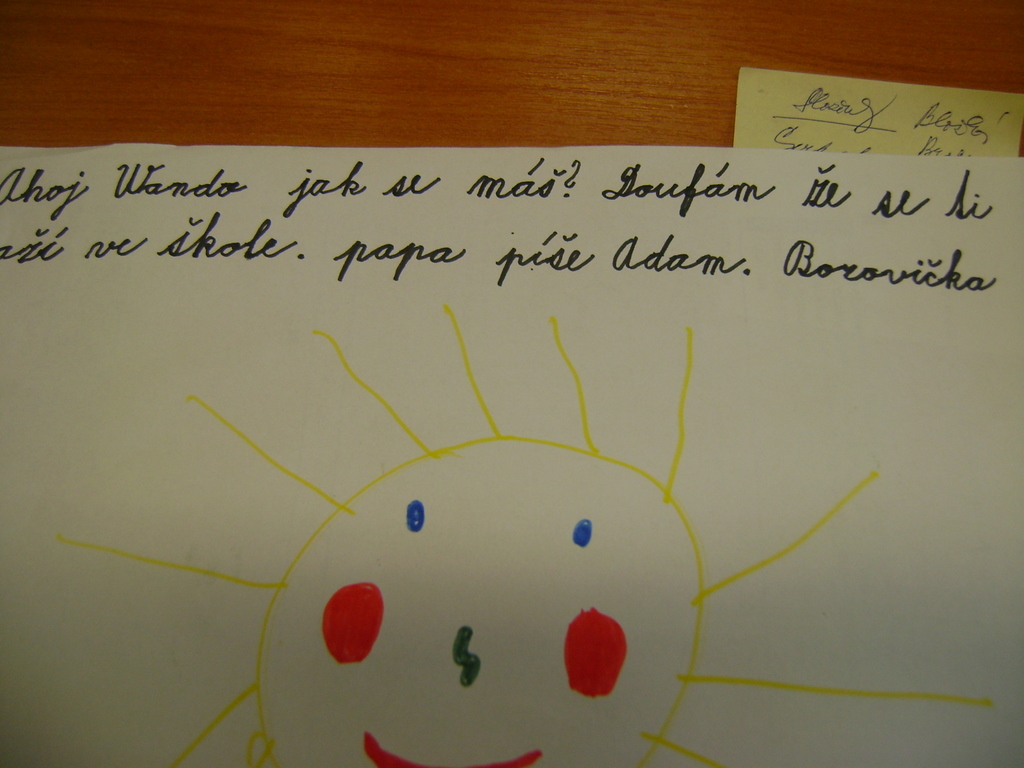 Ahoj Wando jak se máš? Doufám že se ti
aží ve škole. papa píše Adam. Borovička